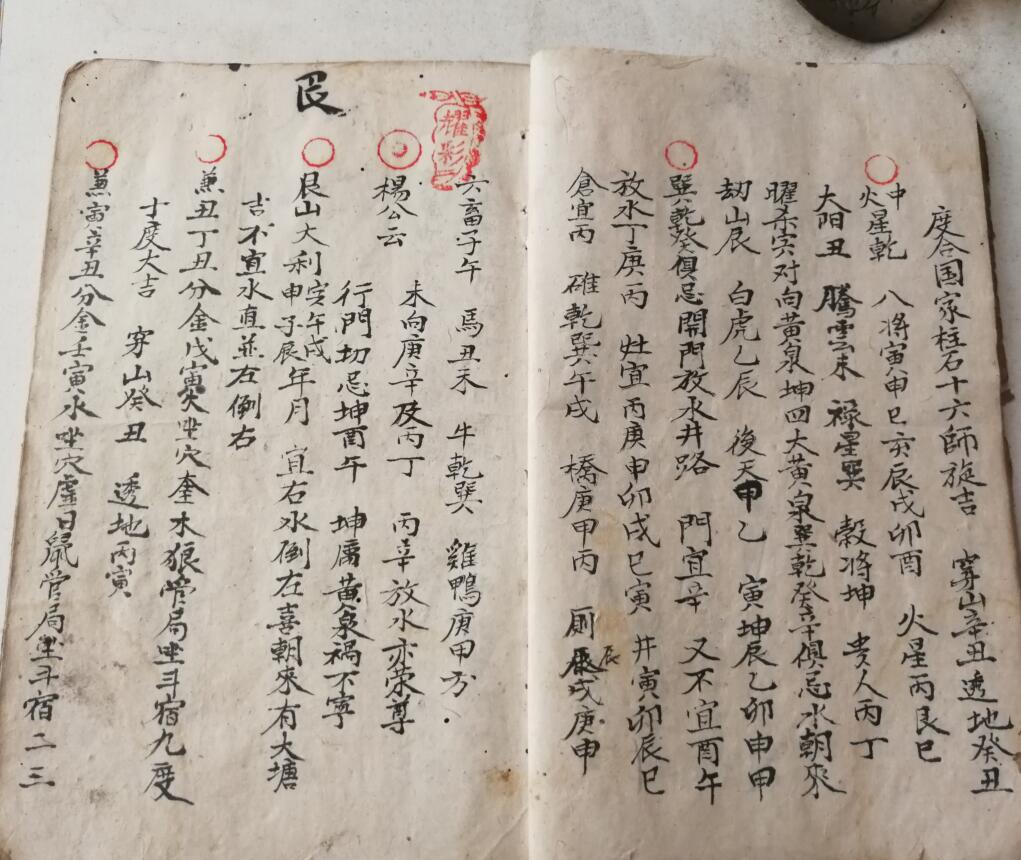 度合国家柱石十六師旋吉 穿山辛丑透地癸丑
中火星乾 八将寅申巳亥辰戌卯酉 火星丙艮巳
太阳丑 騰雲未 禄星巽 穀将坤 贵人丙丁
曜杀寅对向黄泉坤四大黄泉巽乾癸辛俱忌水朝來
劫山辰 白虎乙辰 後天甲乙 寅坤辰乙卯申甲
巽乾癸俱忌開門放水井路 門宜辛 又不宜酉午
放水丁庚丙 灶宜丙庚申卯戌巳寅 井寅卯辰巳
倉宜丙 碓乾巽午戌 橋庚甲丙 厠辰戌庚申
六畜子午 馬丑未 牛乾巽 雞鴨庚甲方
耀彩
未向庚辛及丙丁 丙辛放水亦荣尊
楊公云
行門切忌坤酉午 坤庚黄泉禍不寧
艮
艮山大利寅午戌申子辰年月 宜右水倒左喜朝來有大塘
吉不宜水直並左倒右
兼丑丁丑分金戊寅火坐穴奎木狼管局坐斗宿九度
十度大吉 穿山癸丑 透地丙寅
兼寅辛丑分金壬寅水坐穴虚日鼠管局坐斗宿二三